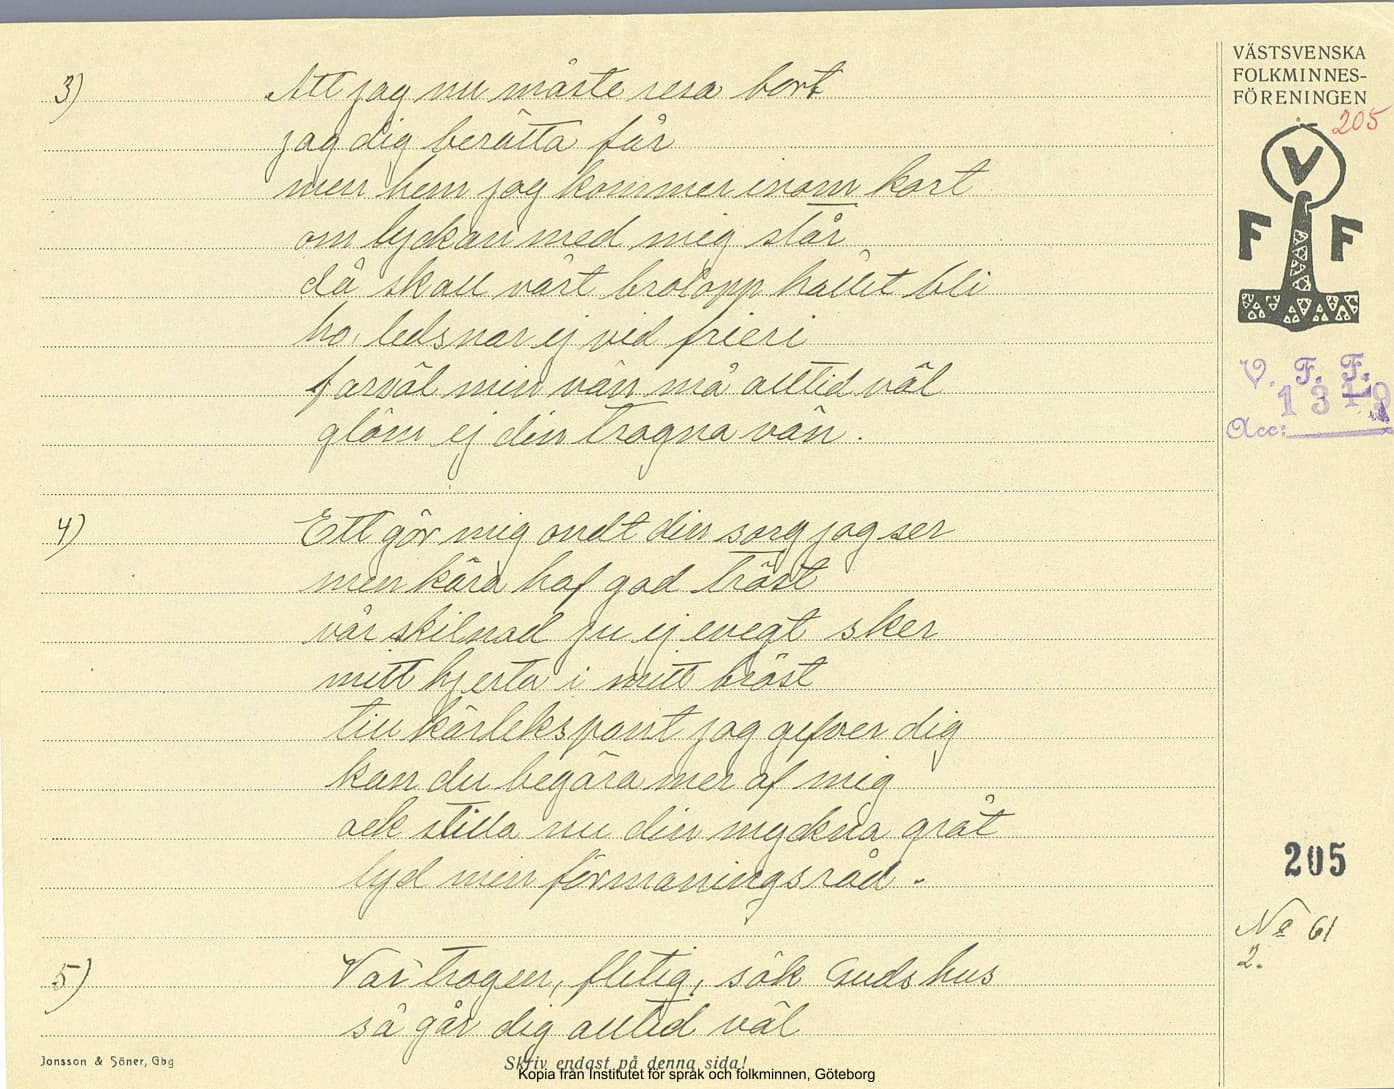 3) Att jag nu måste resa bort
jag dig berätta får
men hem jag kommer inom kort
om lyckan med mig står
då skall vårt brolopp hållit bli
ho, ledsnar ej vid frieri
farväl min vän må alltid väl
glöm ej din trogna vän.
4) Ett gör mig ondt din sorg jag ser
men kära haf god tröst
vår skilnad ju ej evegt sker
mitt hjerta i mitt bröst
till kärlekspant jag gefver dig
kan du begära mer af mig
ack stilla nu din myckna gråt
lyd min förmaningsråd.
5) Var trogen, flitig, sök Guds hus
så går dig alltid väl
Jonsson & Söner, Gbg
Skriv endast på denna sida!
Kopia från Institutet för språk och folkminnen, Göteborg
VÄSTSVENSKA
FOLKMINNES-
FÖRENINGEN
205
V
F F
V. F. F.
Acc:
205
No 61
2.